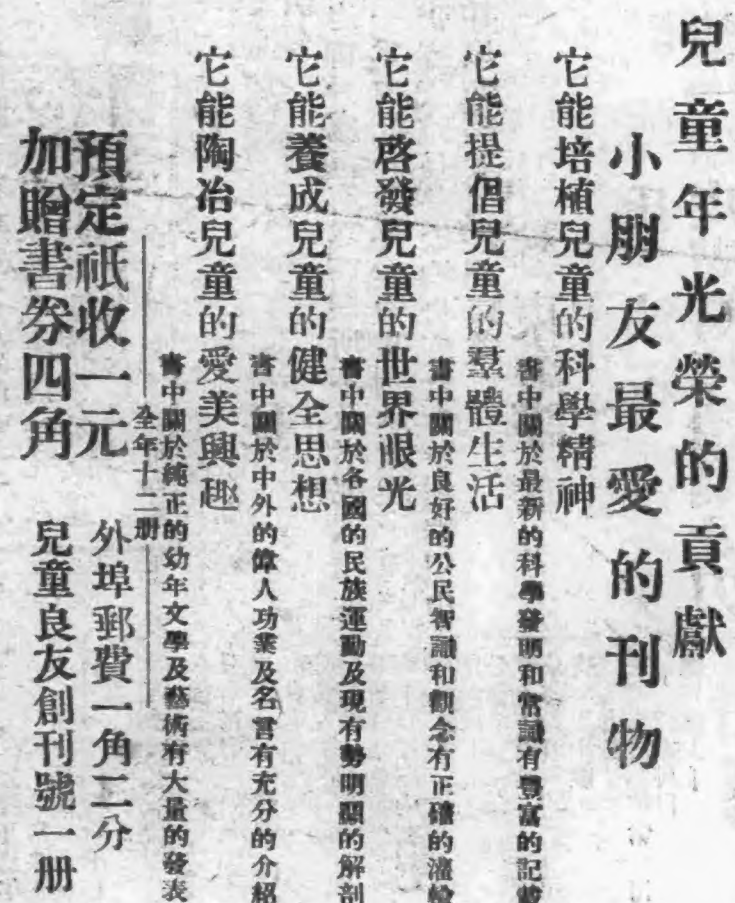 兒童年光榮的貢獻
小朋友最愛的刊物
它能培植兒童的科學精神
書中關於最新的科學發明和常識有豐富的記載
它能提倡兒童的羣體生活
書中關於良好的公民智識和觀念有正確的灌輸
它能啓發兒童的世界眼光
書中關於各國的民族運動及現有勢明顯的解剖
它能養成兒童的健全思想
書中關於中外的偉人功業及名言有充分的介紹
它能陶冶兒童的愛美興趣
書中關於純正的幼年文學及藝術有大量的發表
全年十二册
預定祇收一元
外埠郵費一角二分
加贈書券四角
兒童良友創刊號一册